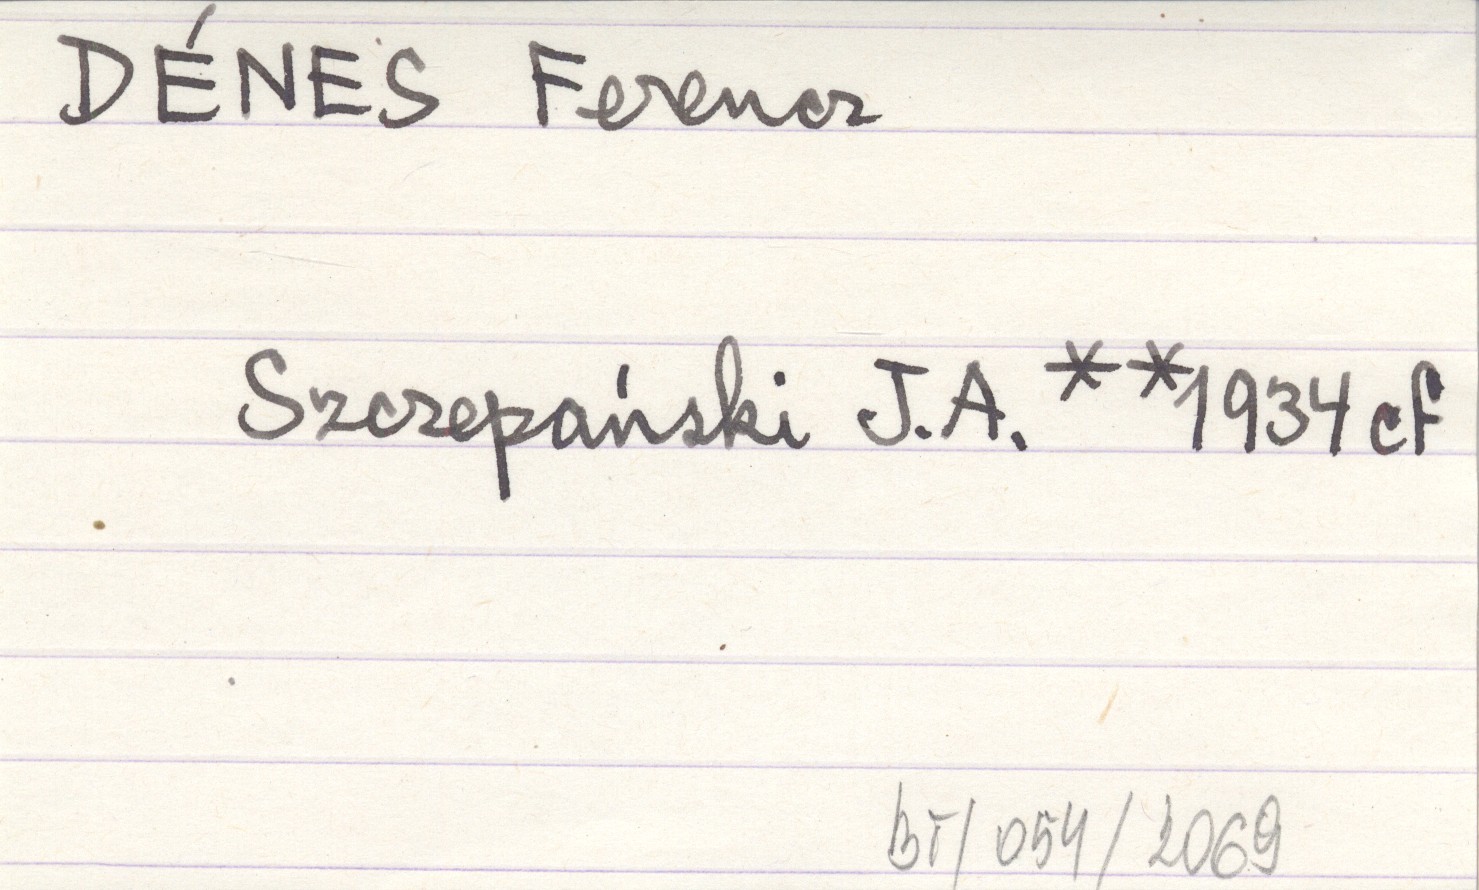 DÉNES Ferencz
Szczepański J.A. **1934 cf
BT/054/2069